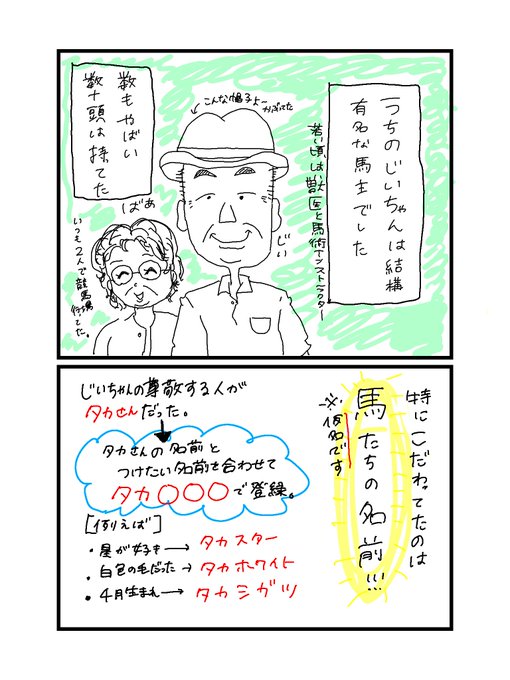 うちのじいちゃんは結構
有名な馬主でした
若い頃は獣医と馬術インストラクター
こんな帽子よくかぶってた
じい
数もやばい
数十頭は持てた
ばあ
いつも2人で競馬場
行ってた。
特にこだわってたのは
馬たちの名前!!!
※仮名です
じいちゃんの尊敬する人が
タカさんだった。
タカさんの名前と
つけたい名前を合わせて
タカ○○○で登録。
[例えば]
・星が好き→タカスター
・白色の毛だった→タカホワイト
・4月生まれ→タカシガツ